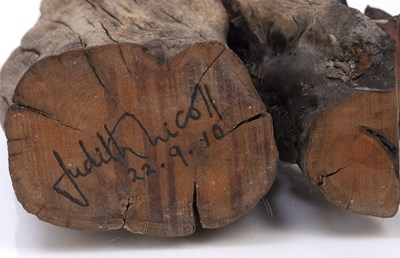 Judith Nicoll
22.9.10